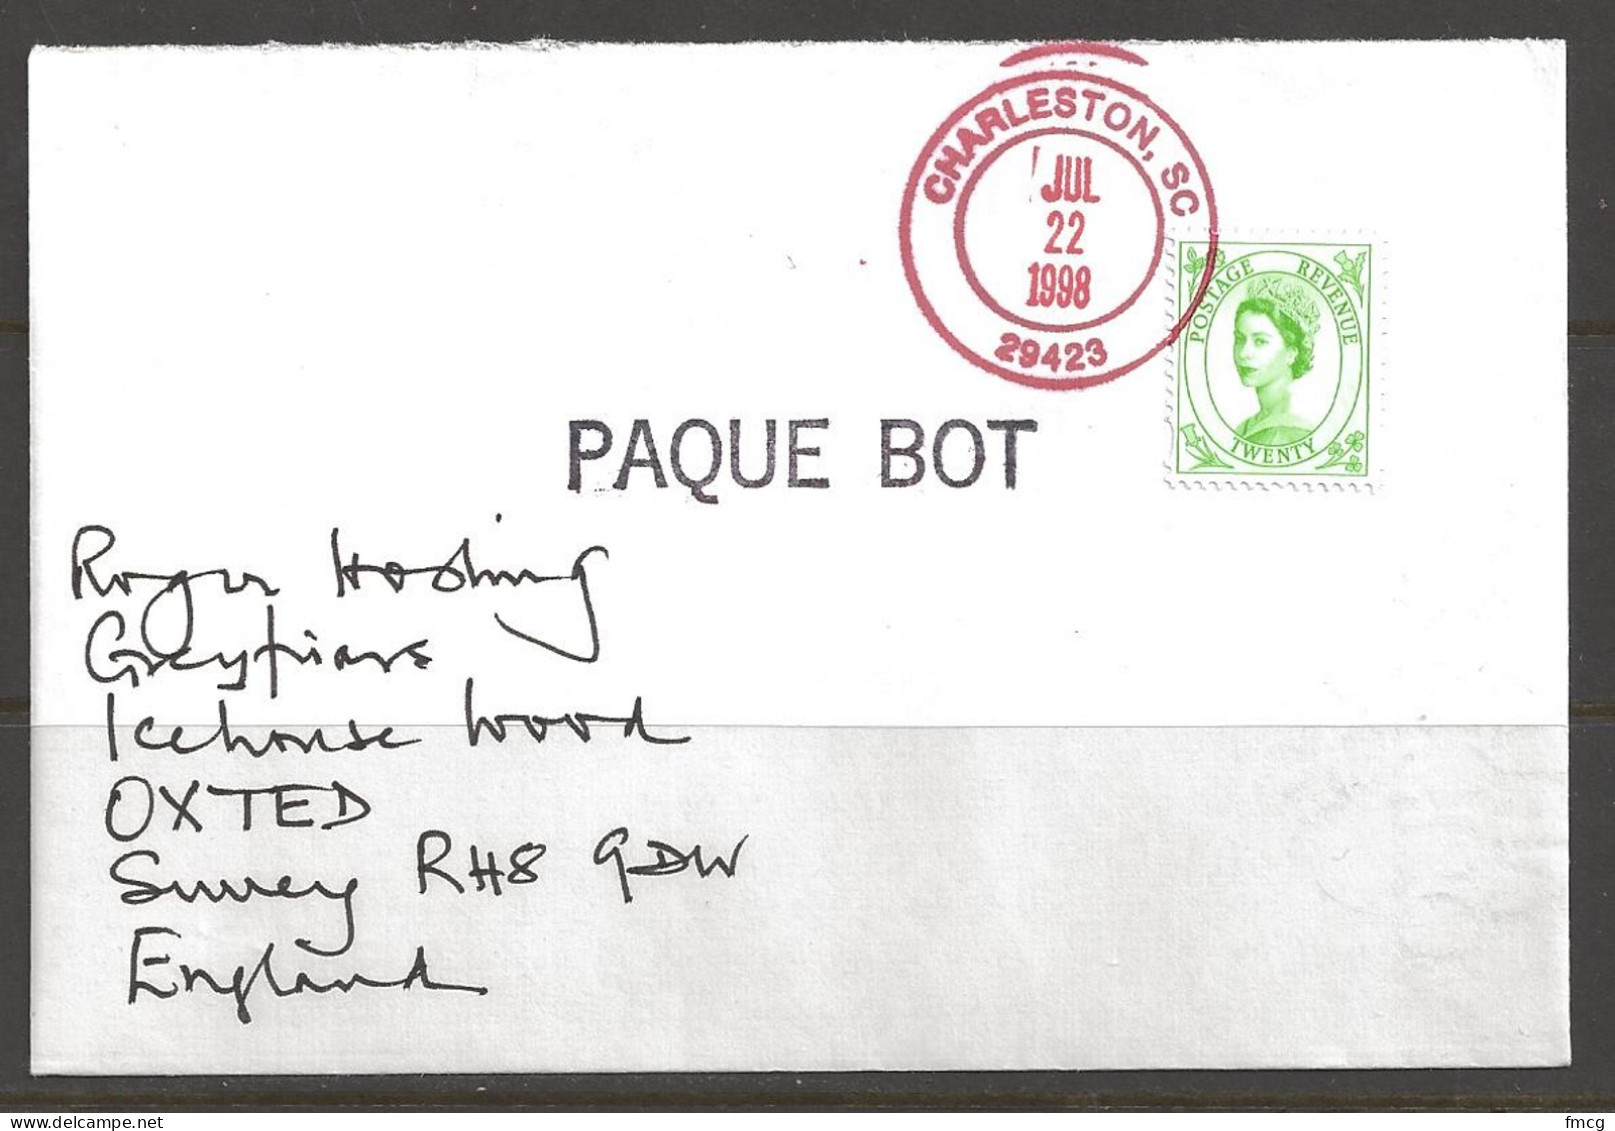 CHARLESTON, SC
JUL
22
1998
29423
POSTAGE REVENUE
TWENTY
PAQUE BOT
Roger Hosking
Greyfriars
Icehouse Wood
OXTED
Surrey RH8 9DW
England
delcampe.net
fmcg